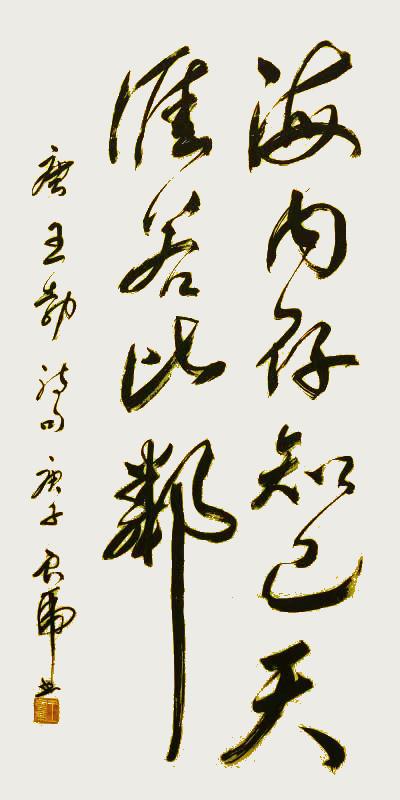 海内存知己天
涯若比鄰
唐王勃诗句庚子书